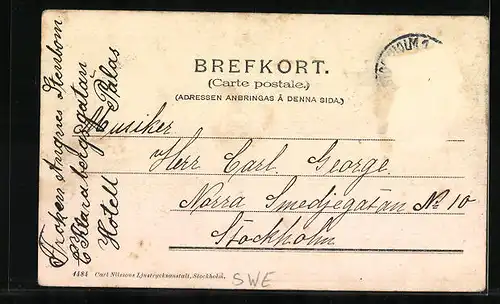 BREFKORT.
(Carte postale.)
(ADRESSEN ANBRINGAS Å DENNA SIDA.)
Musiker
Herr Carl George
Norra Smedjegatan No 10
Stockholm
Fröken Stenbom
Klarabergsgatan
Hotell Palas
1484 Carl Nilssons Ljustrycksanstalt, Stockholm.
SWE